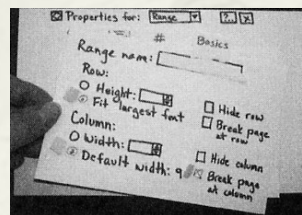 Properties for: Range ?.. X
# Basics
Range name:
Row:
Height:
Fit largest font
Hide row
Break page
at row
Column:
Width:
Default width: 9
Hide column
Break page
at column